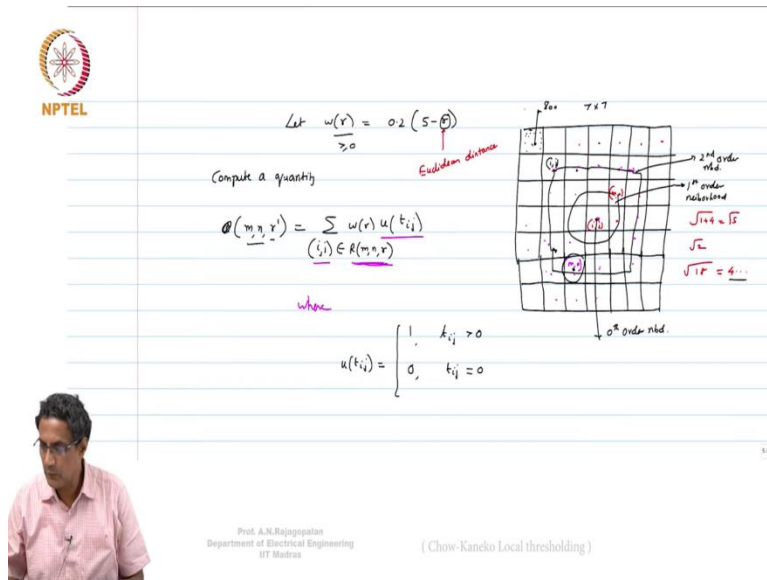 NPTEL
Let w(r) = 0.2 (5-r)
≥0
Euclidean distance
Compute a quantity
(m,n,r') = Σ w(r) u(tij)
(i,j) ∈ R(m,n,r)
where
u(tij) = { 1, tij > 0
0, tij = 0
800 7x7
(i,j)
2nd order nbd.
1st order neiborhood
(i,j)
√1+4 = √5
√2
(m,n)
√18 = 4...
0th order nbd.
Prof. A.N.Rajagopalan
Department of Electrical Engineering
IIT Madras
( Chow-Kaneko Local thresholding )